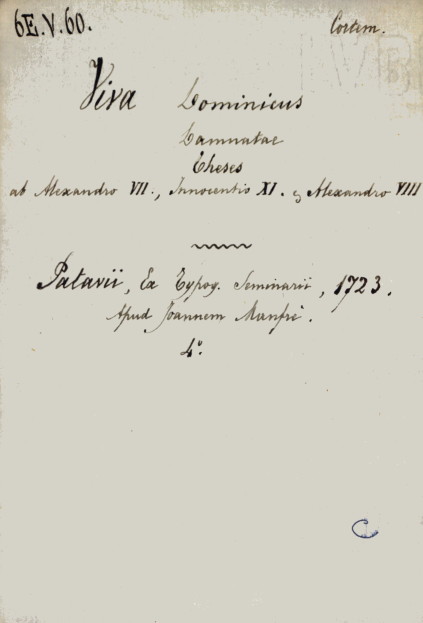 6E.V.60.
Cortem.
Viva Dominicus
Damnatae
Theses
ab Alexandro VII., Innocentio XI. & Alexandro VIII
Patavii, Ex Typog. Seminarii, 1723.
Apud Joannem Manfrè.
4º.
C